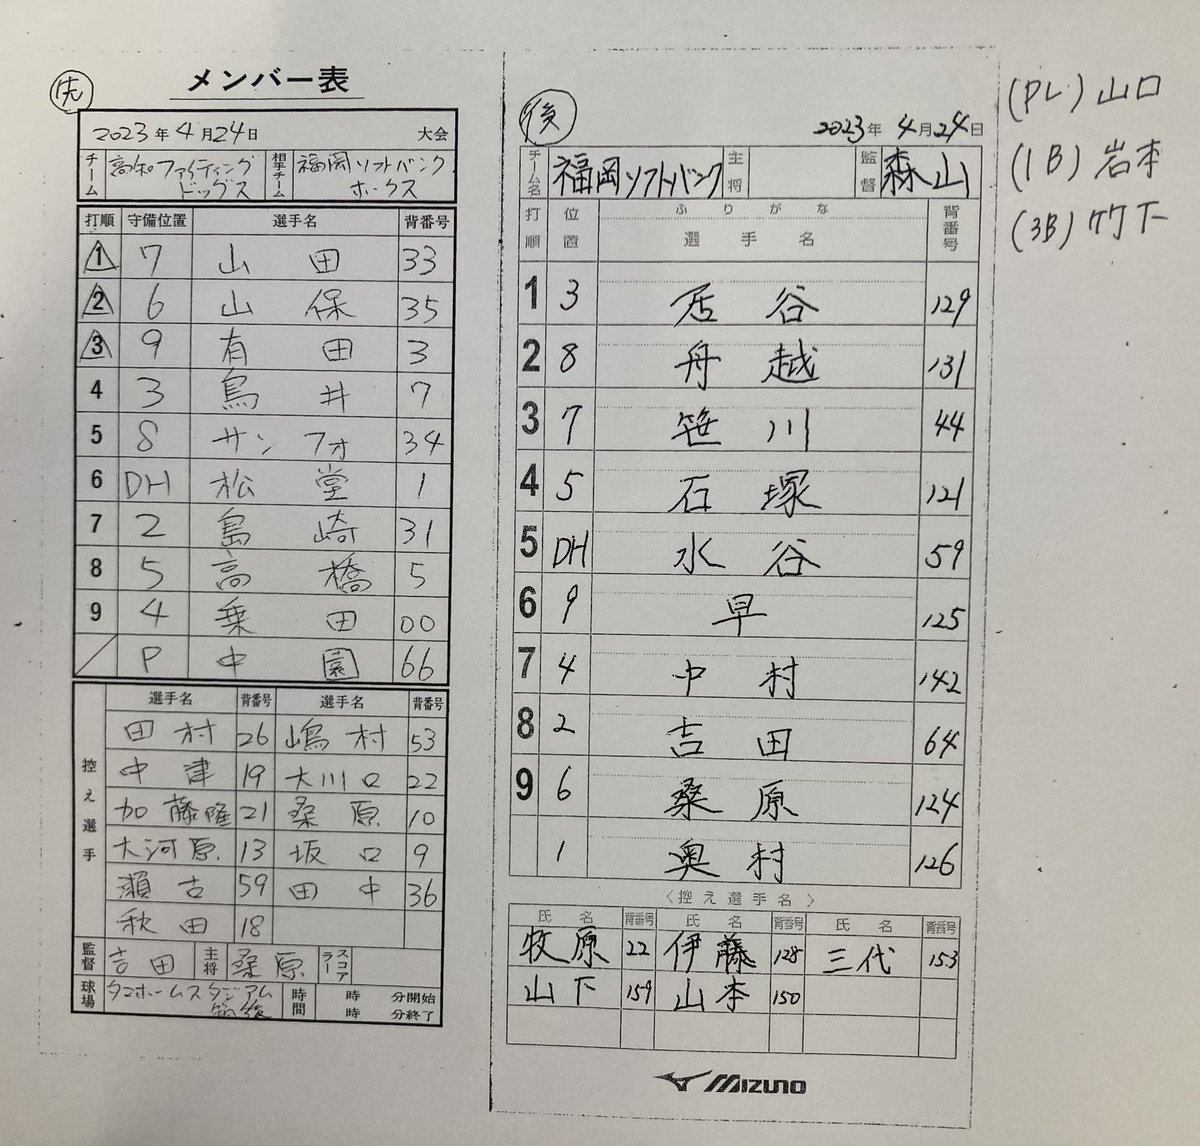 先
メンバー表
2023年4月24日 大会
チーム 高知ファイティングドッグス 相手チーム 福岡ソフトバンクホークス
打順 守備位置 選手名 背番号
1 7 山田 33
2 6 山保 35
3 9 有田 3
4 3 鳥井 7
5 8 サンフォ 34
6 DH 松堂 1
7 2 島崎 31
8 5 高橋 5
9 4 乗田 00
P 中園 66
控え選手
選手名 背番号 選手名 背番号
田村 26 嶋村 53
中津 19 大川口 22
加藤隆 21 桑原 10
大河原 13 坂口 9
瀬古 59 田中 36
秋田 18
監督 吉田 主将 桑原 スコアラー
球場 タマホームスタジアム筑後 時間 時 分開始
時 分終了
後
2023年4月24日
チーム名 福岡ソフトバンク 主将 監督 森山
打順 位置 ふりがな 選手名 背番号
1 3 居谷 129
2 8 舟越 131
3 7 笹川 44
4 5 石塚 121
5 DH 水谷 59
6 9 早 125
7 4 中村 142
8 2 吉田 64
9 6 桑原 124
1 奥村 126
〈控え選手名〉
氏名 背番号 氏名 背番号 氏名 背番号
牧原 22 伊藤 128 三代 153
山下 159 山本 150
MIZUNO
(PL) 山口
(1B) 岩本
(3B) 竹下